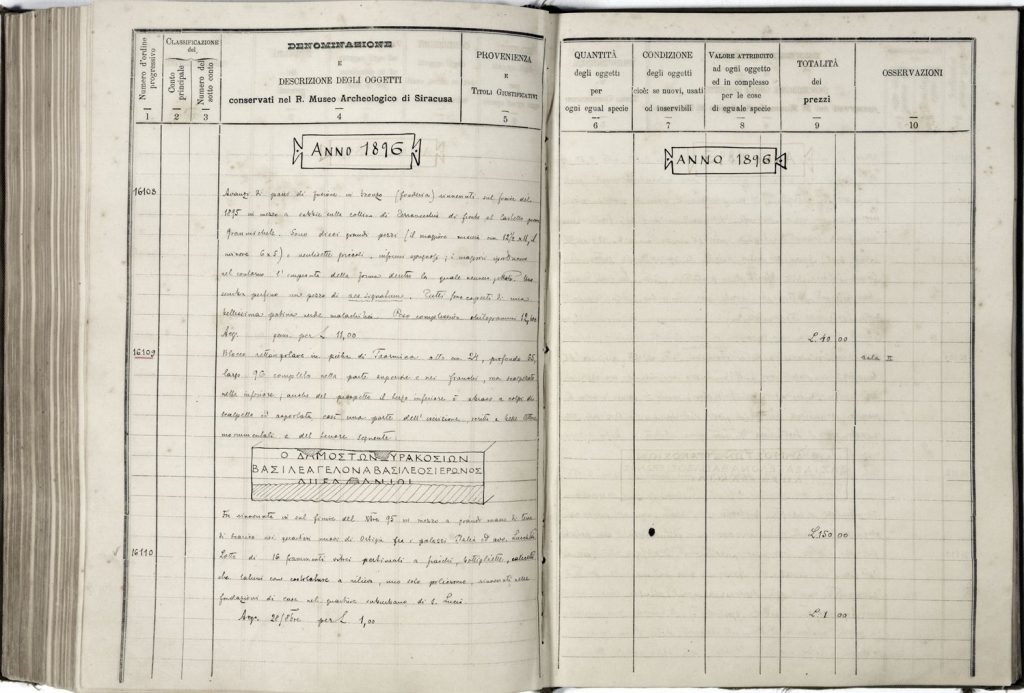 Numero d'ordine progressivo
CLASSIFICAZIONE del
Conto principale
Numero del sotto conto
DENOMINAZIONE
E
DESCRIZIONE DEGLI OGGETTI
conservati nel R. Museo Archeologico di Siracusa
PROVENIENZA
E
TITOLI GIUSTIFICATIVI
1 2 3 4 5
ANNO 1896
16108
Avanzi di pani di fusione in bronzo (fonderia) rinvenuti sul finire del
1895 in mezzo a sabbie sulla collina di Terravecchia di fronte al
Grammichele. Sono dieci grandi pezzi (il maggiore misura cm 12½ x 11, il
minore 6 x 5) e ventisette piccoli, informi ; i maggiori
nel contorno l'impronta della forma dentro la quale
sembra perfino un pezzo di aes signatum. Tutti sono coperti di una
bellissima patina verde malachite. Peso complessivo chilogrammi 12,
Acq. per L 11,00
16109
Blocco rettangolare in pietra di Taormina alto cm 24, profondo
largo 90 completo nella parte superiore e nei fianchi, ma scalpellato
nelle inferiore; anche del prospetto il terzo inferiore è abraso a colpi di
scalpello ed asportata così una parte dell'iscrizione, a lettere
monumentali e del tenore seguente.
Ο ΔΑΜΟΣΤΩΝ ΣΥΡΑΚΟΣΙΩΝ
ΒΑΣΙΛΕΑΓΕΛΩΝΑΒΑΣΙΛΕΟΣΙΕΡΩΝΟΣ
Fu rinvenuto in sul finire del Xbre 95 in mezzo a grandi masse di terra
di scarico nei quartieri nuovi di Ortigia fra i palazzi
16110
Lotto di 16 frammenti vitrei pertinenti a fiaschi, bottigliette,
che taluni con costolature a rilievo, uno solo policromo, rinvenuti nelle
fondazioni di case nel quartiere suburbano di S. Lucia.
Acq. 28/ per L 1,00
QUANTITÀ
degli oggetti
per
ogni egual specie
CONDIZIONE
degli oggetti
cioè: se nuovi, usati
od inservibili
VALORE ATTRIBUITO
ad ogni oggetto
ed in complesso
per le cose
di eguale specie
TOTALITÀ
dei
prezzi
OSSERVAZIONI
6 7 8 9 10
ANNO 1896
L. 00
sala II
L. 150 00
L. 1 00